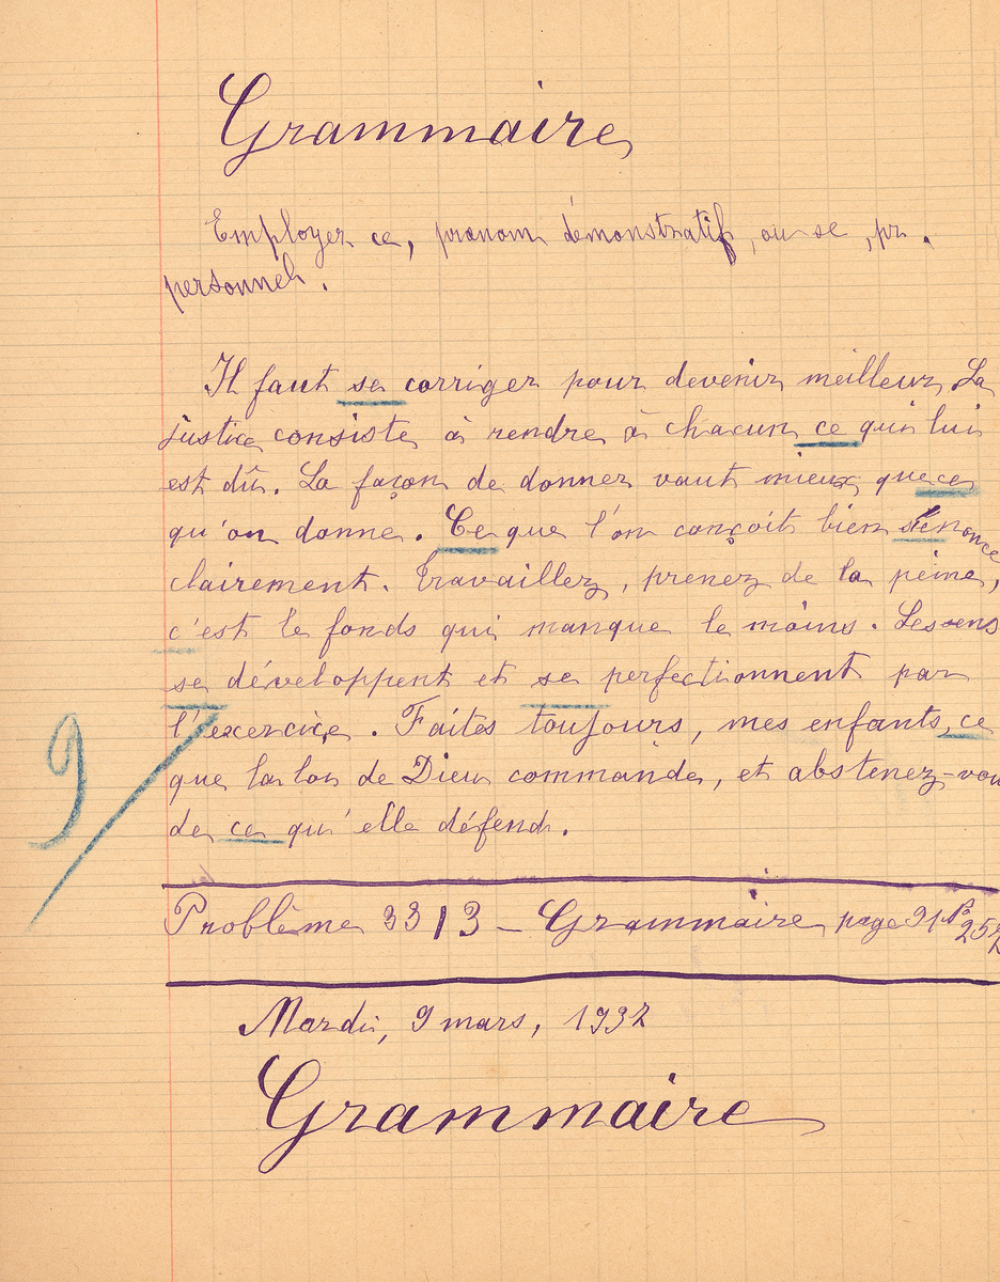 Grammaire
Employer ce, pronom démonstratif, ou se, pr.
personnel.
Il faut se corriger pour devenir meilleur. La
justice consiste à rendre à chacun ce qui lui
est dû. La façon de donner vaut mieux que ce
qu'on donne. Ce que l'on conçoit bien s'énonce
clairement. Travaillez, prenez de la peine,
c'est le fonds qui manque le moins. Les sens
se développent et se perfectionnent par
l'exercice. Faites toujours, mes enfants, ce
que la loi de Dieu commande, et abstenez-vou
de ce qu'elle défend.
9
Problème 3313 - Grammaire page 91 N° 252
Mardi, 9 mars, 1932
Grammaire